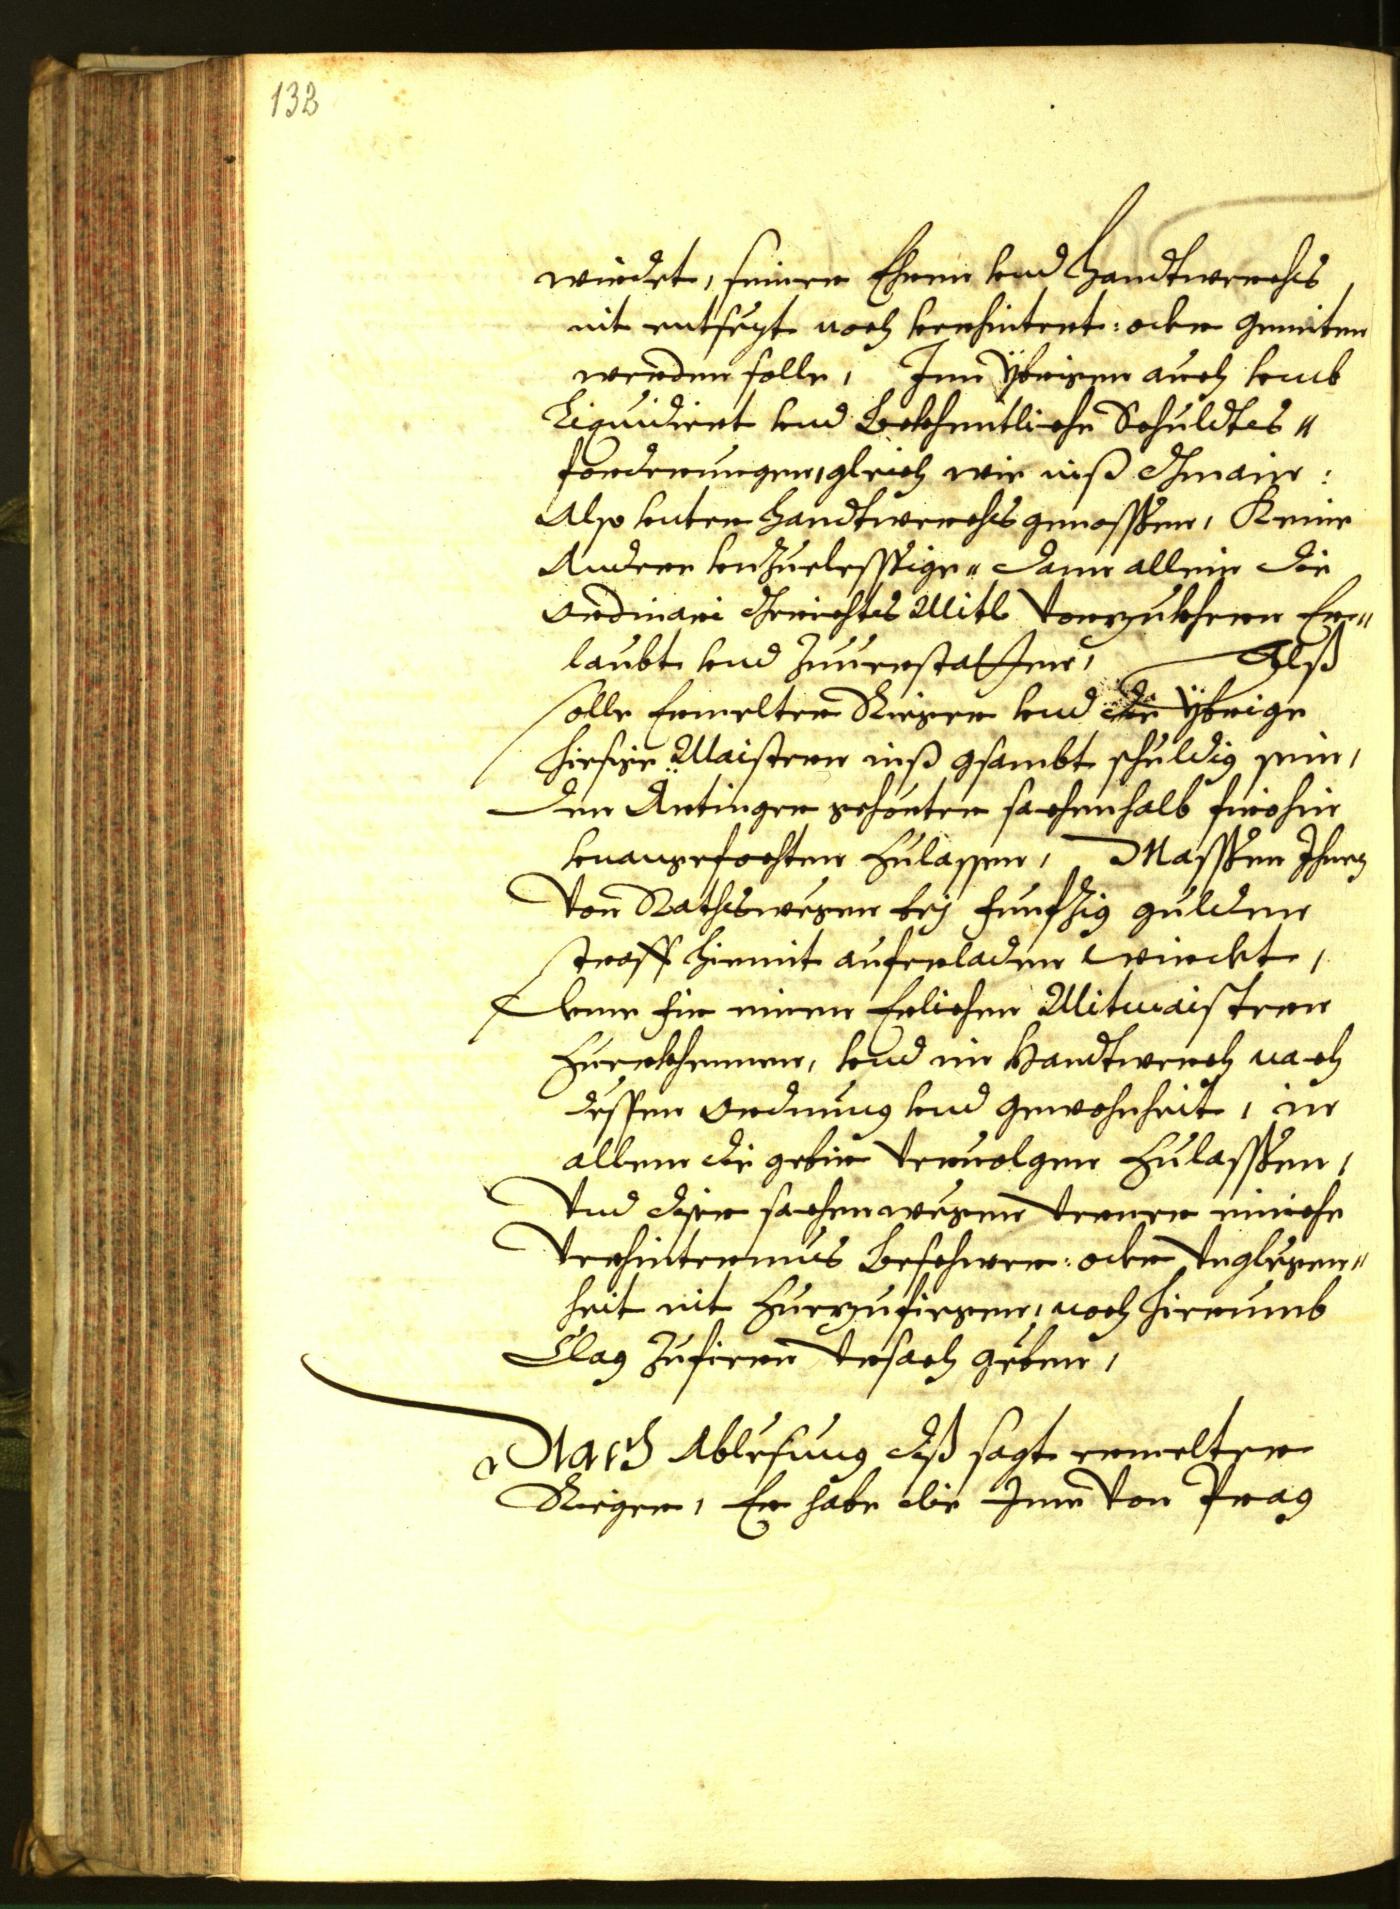 132
würdet, seinen Ehrn vnd Handtwerchs
nit entsezt noch verhintert: oder gemiten
werden solle, Inn Ybrigen auch vmb
Liquidiert vnd Bekhentliche Schuldts"
forderungen, gleich wie inß Gmain:
Also vnter Handtwerchs genossßen, Keine
Andere vnzuelessßige" dann allein die
ordinari Grichts Mitl vorzukhern Er"
laubt vnd Zuuerstatten, Alß
solle Ermelter Rieger vnd die Ybrige
hiesige Maistern inß gsambt schuldig sein,
Den Äntinger gehörter sachenhalb firohin
vnangefochten Zulassen, Massßen Ihnen
von Rathswegen bej funfzig gulden
straff hiemit auferladen wirdet,
Denn fir einen Erlichen Mitmaistern
Zuerkhennen, vnd im Handtwerch nach
dessen ordnung vnd gewohnheit, in
allem die gebir veruolgen Zulassßen,
Vnd diser sachen wegen verner einiche
verhinternus Beschwer: oder Vnglegen"
heit nit Zuezufiegen, noch hierumb
Clag Zufiren Vrsach geben,
Nach Ablesung diß sagt ermelter
Rieger, Er habe die Jenn von Prag